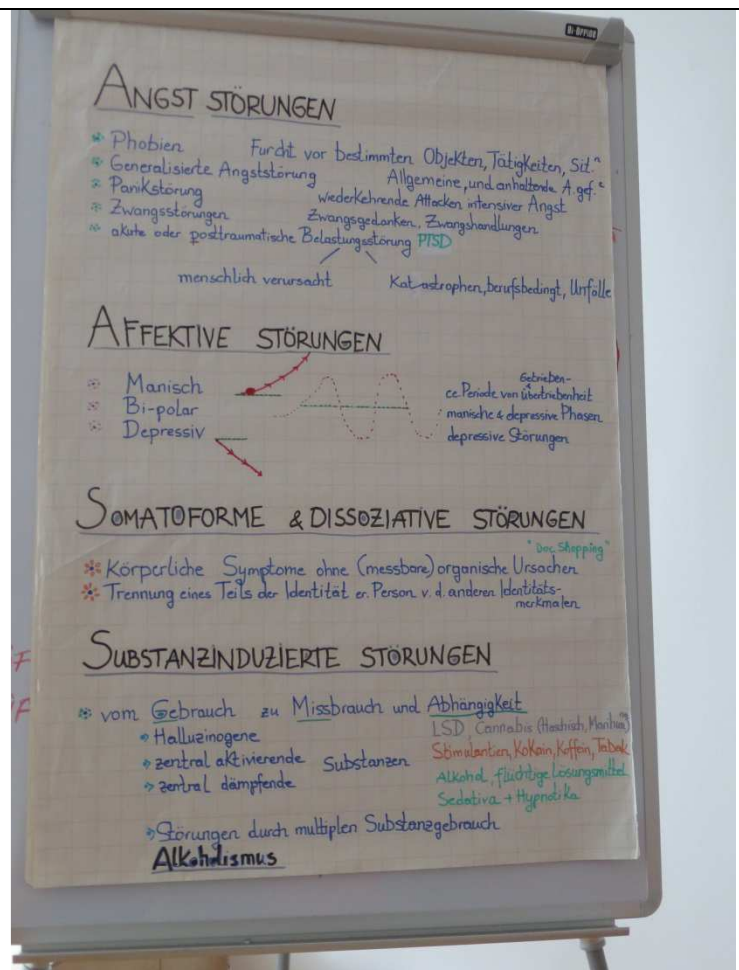 Bi-Office
ANGST STÖRUNGEN
Phobien Furcht vor bestimmten Objekten, Tätigkeiten, Sit.ⁿ
Generalisierte Angststörung Allgemeine, und anhaltende A.gef.ᵉ
Panikstörung wiederkehrende Attacken intensiver Angst
Zwangsstörungen Zwangsgedanken, Zwangshandlungen
akute oder posttraumatische Belastungsstörung PTSD
menschlich verursacht Katastrophen, berufsbedingt, Unfälle
AFFEKTIVE STÖRUNGEN
Manisch Periode von übertriebenheit
Bi-polar manische & depressive Phasen
Depressiv depressive Störungen
SOMATOFORME & DISSOZIATIVE STÖRUNGEN
"Doc Shopping"
Körperliche Symptome ohne (messbare) organische Ursachen
Trennung eines Teils der Identität er. Person v. d. anderen Identitäts-
merkmalen
SUBSTANZINDUZIERTE STÖRUNGEN
vom Gebrauch zu Missbrauch und Abhängigkeit
Halluzinogene LSD, Cannabis (Haschisch,
zentral aktivierende Substanzen Stimulantien, Kokain, Koffein, Tabak
zentral dämpfende Alkohol, flüchtige Lösungsmittel
Sedativa + Hypnotika
Störungen durch multiplen Substanzgebrauch
Alkoholismus